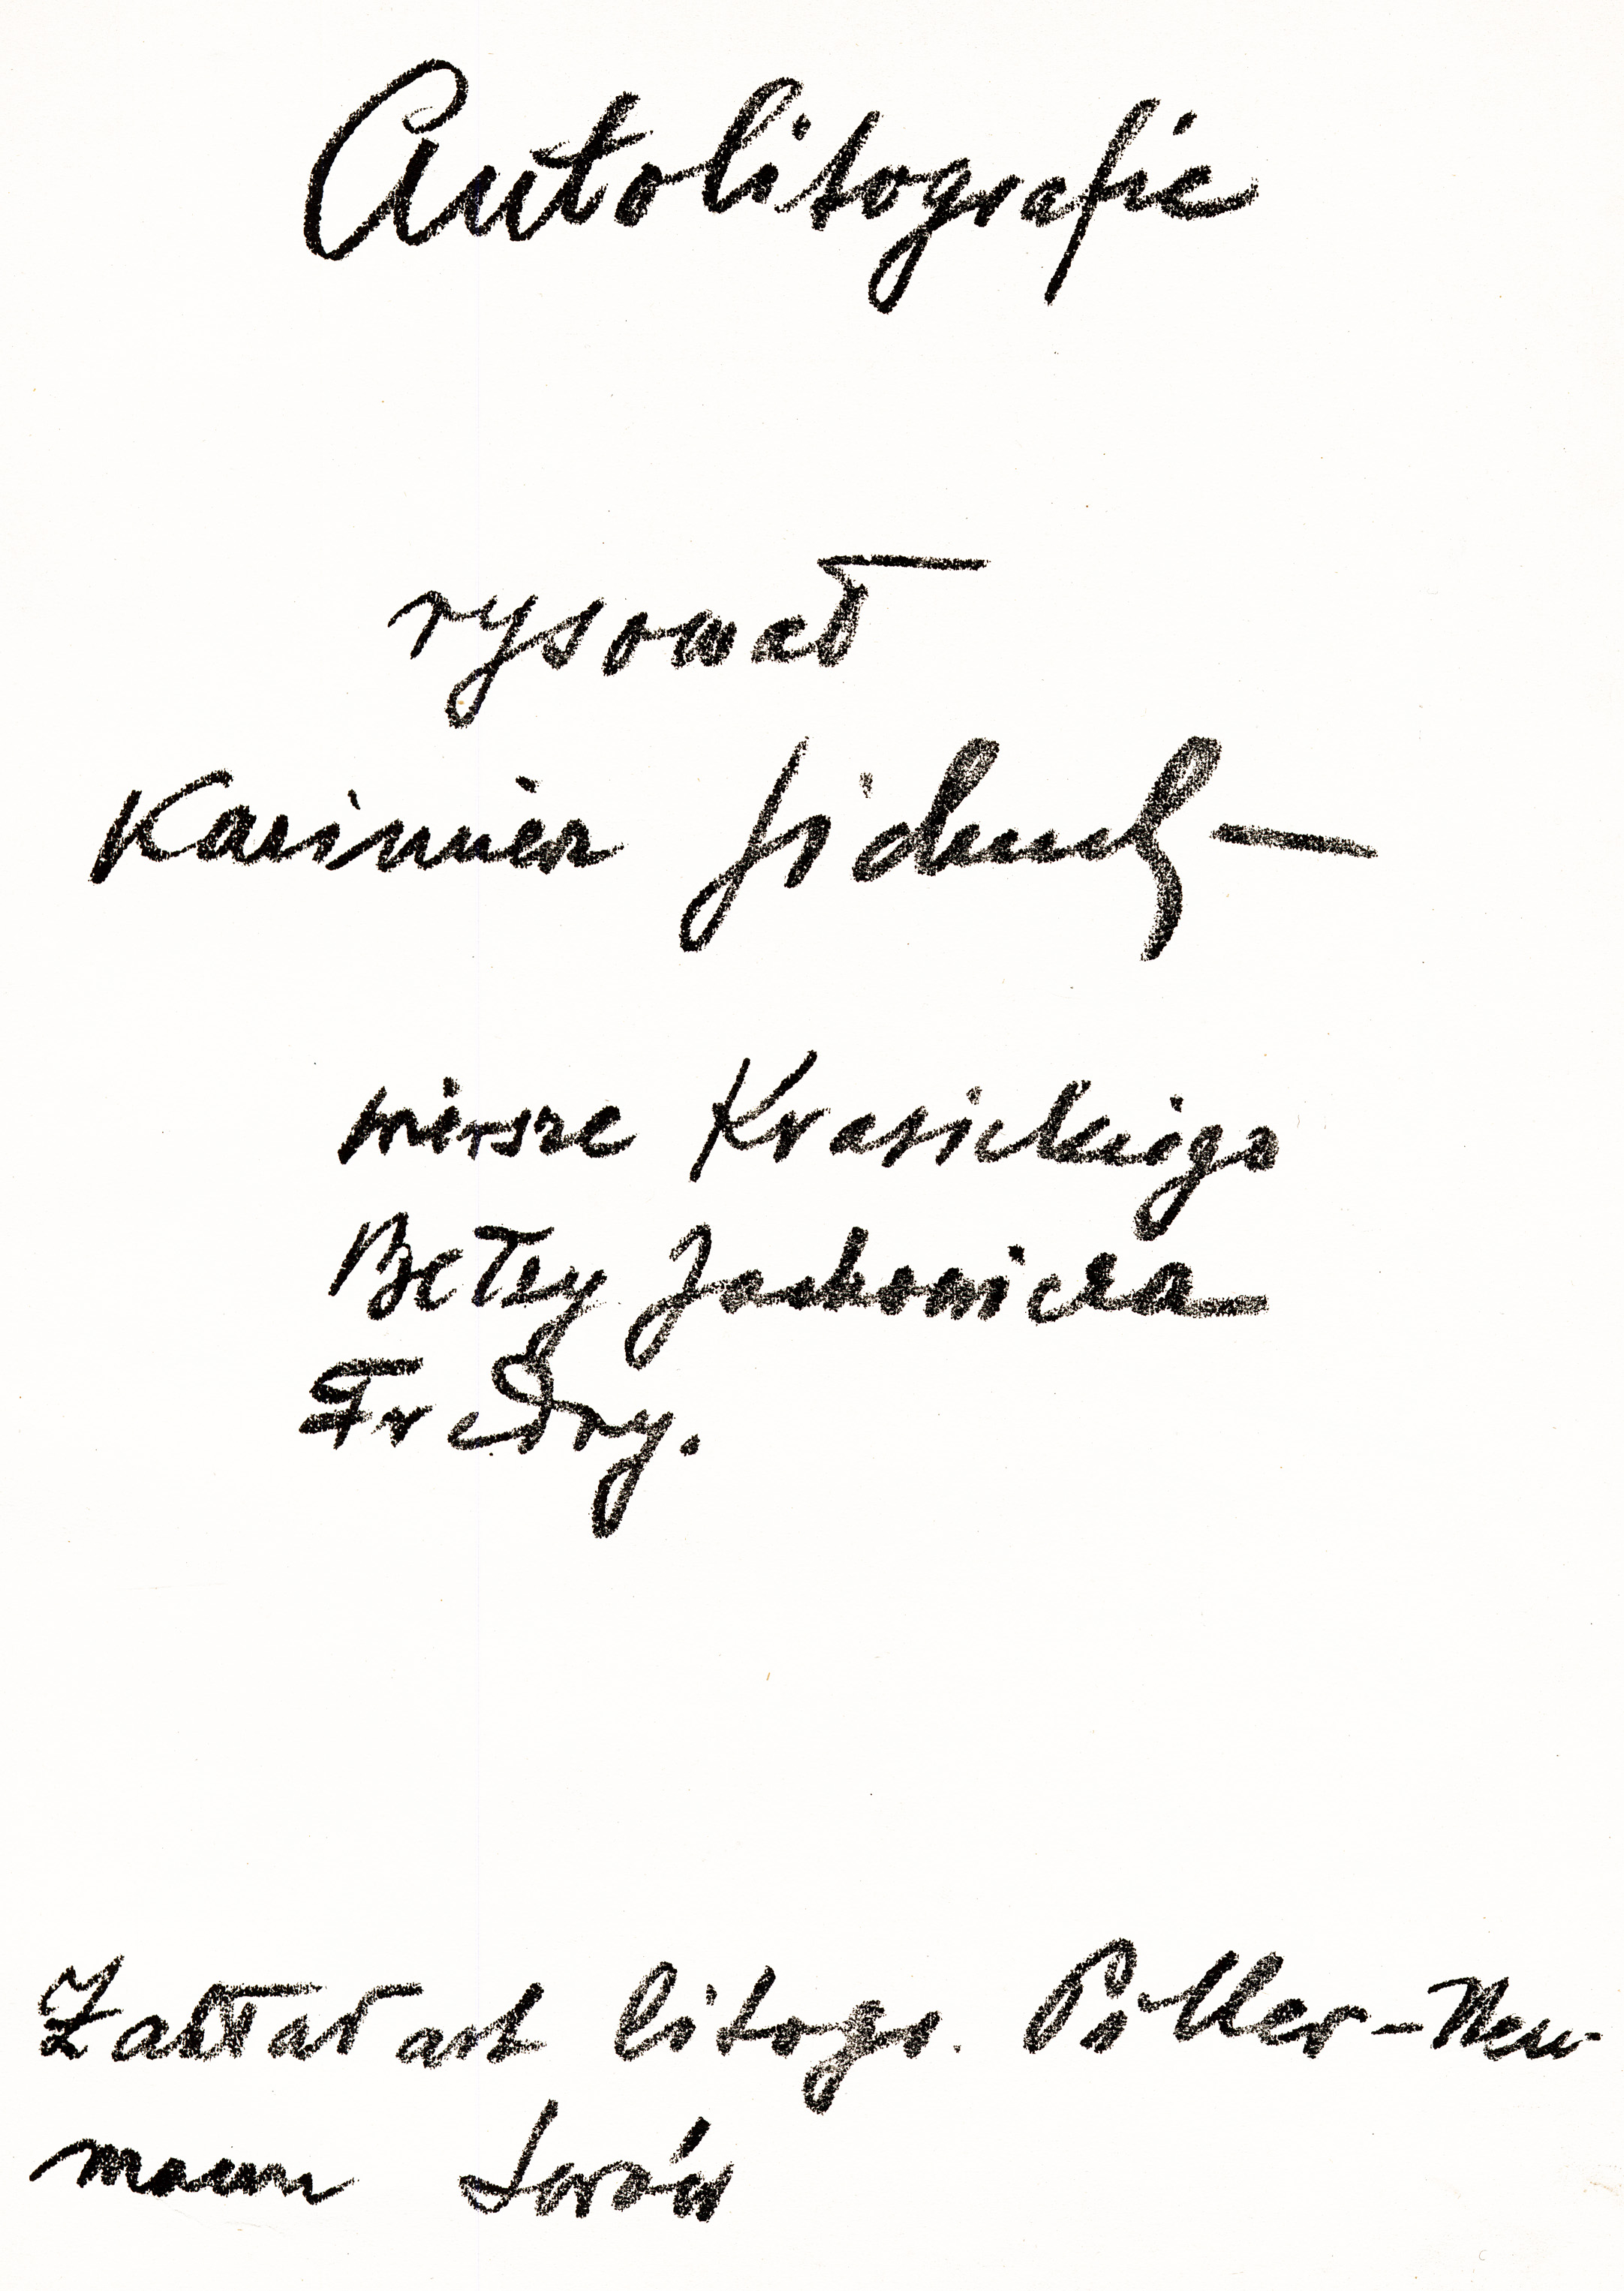 Autolitografie
rysował
Kazimierz Sichulski
wiersze Krasickiego
Betzy Jachowicza
Fredry.
Zakład art litogr. Piller-Neu-
mann Lwów